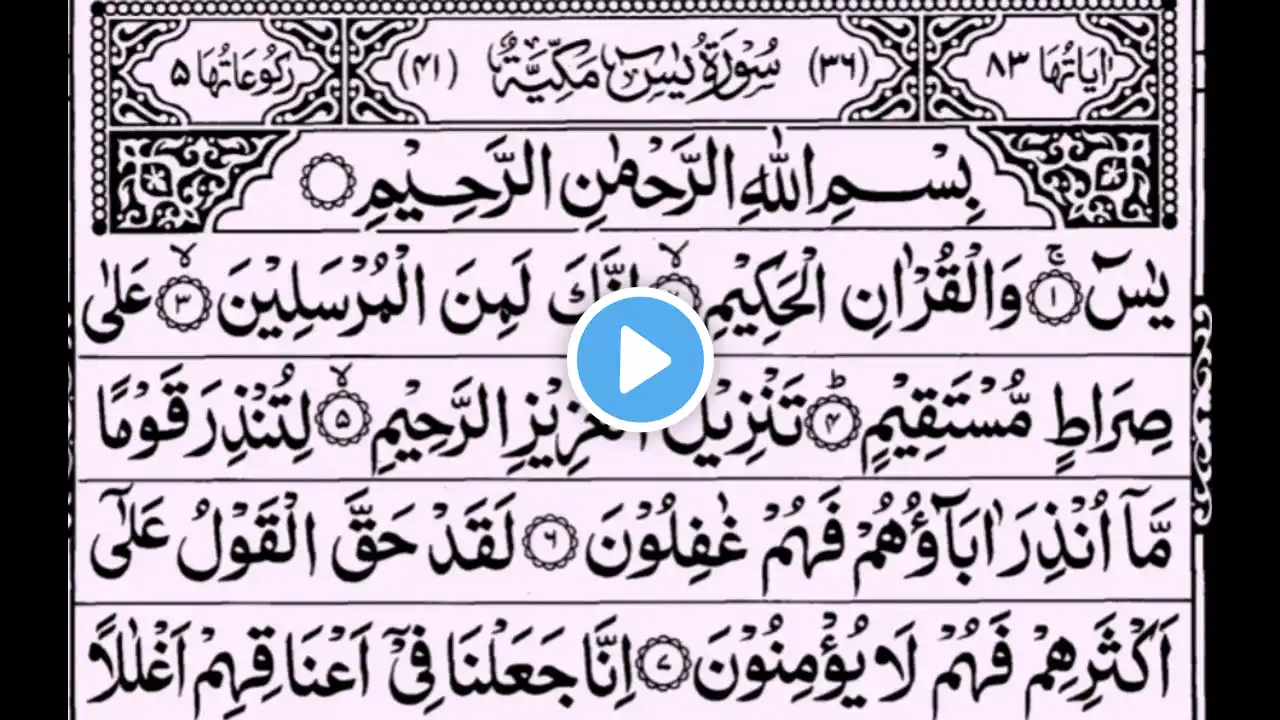 اٰیَاتُهَا ٨٣ (٣٦) سُوْرَةُ یٰسٓ مَكِّیَّةٌ (٤١) رُكُوْعَاتُهَا ٥
بِسْمِ اللّٰهِ الرَّحْمٰنِ الرَّحِیْمِ
یٰسٓ ۚ﴿١﴾ وَالْقُرْاٰنِ الْحَكِیْمِ ۙ اِنَّكَ لَمِنَ الْمُرْسَلِیْنَ ۙ﴿٣﴾ عَلٰی
صِرَاطٍ مُّسْتَقِیْمٍ ؕ﴿۴﴾ تَنْزِیْلَ الْعَزِیْزِ الرَّحِیْمِ ۙ﴿۵﴾ لِتُنْذِرَ قَوْمًا
مَّاۤ اُنْذِرَ اٰبَآؤُهُمْ فَهُمْ غٰفِلُوْنَ ﴿۶﴾ لَقَدْ حَقَّ الْقَوْلُ عَلٰۤی
اَكْثَرِهِمْ فَهُمْ لَا یُؤْمِنُوْنَ ﴿٧﴾ اِنَّا جَعَلْنَا فِیْۤ اَعْنَاقِهِمْ اَغْلٰلًا